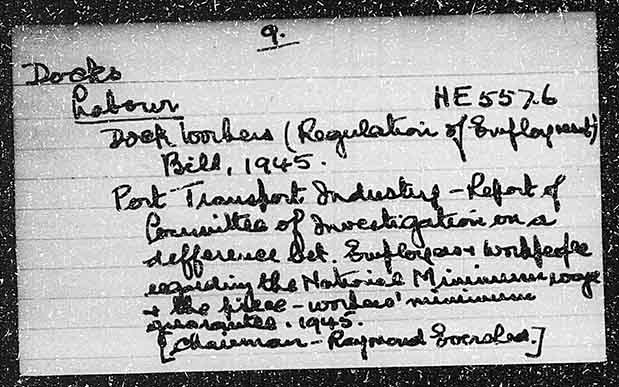 9.
Docks
Labour
HE 557.6
Dock Workers (Regulation of Employment)
Bill, 1945.
Port Transport Industry - Report of
Committee of Investigation on a
difference bet. Employers & workpeople
regarding the National Minimum wage
& the piece-workers' minimum
guarantee. 1945.
[Chairman - Raymond Evershed.]